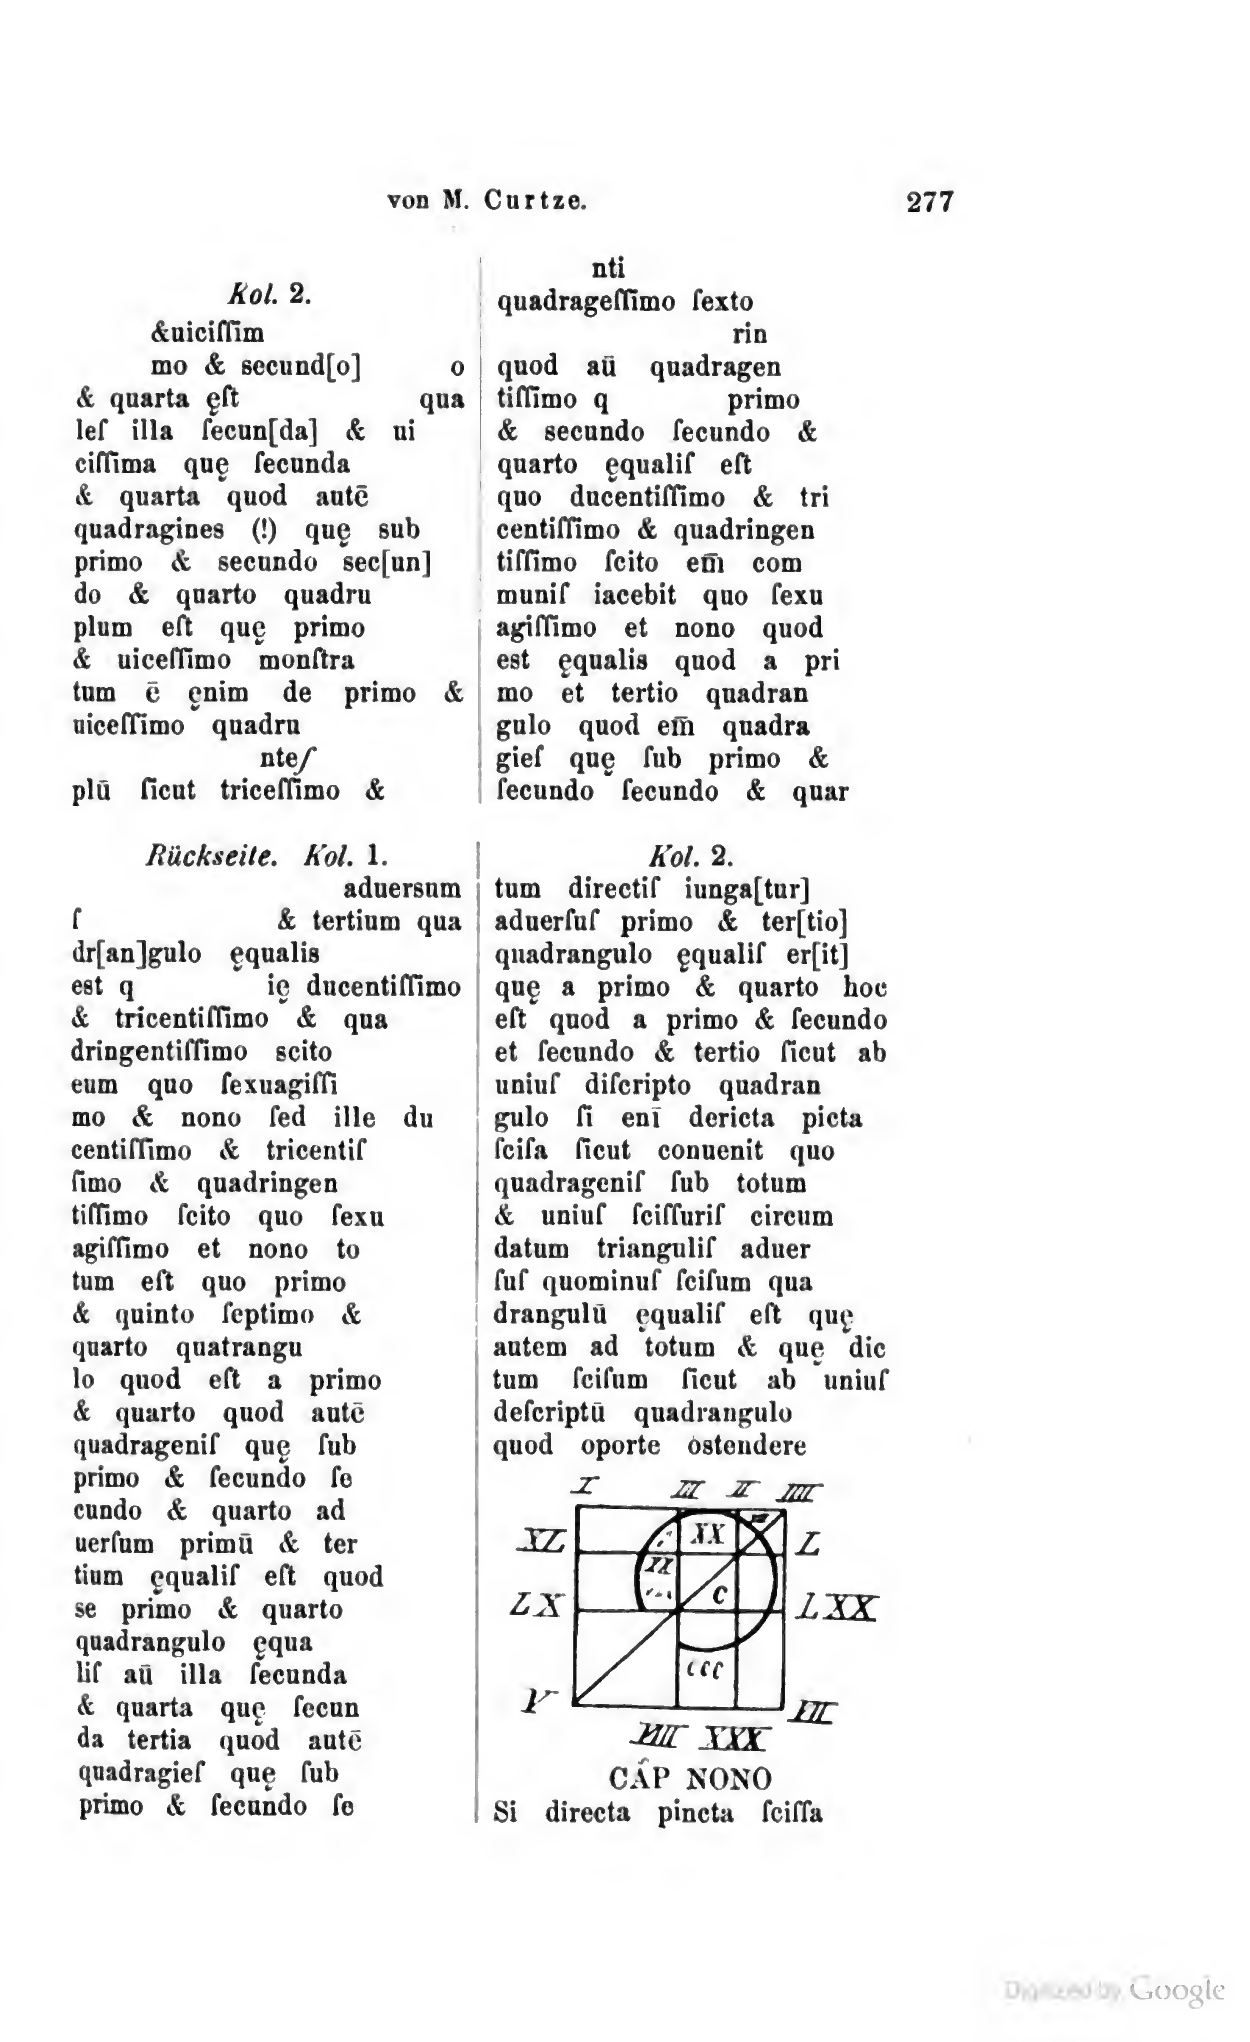 von M. Curtze.
277
Kol. 2.
&uiciſſim
mo & secund[o] o
& quarta ęſt qua
leſ illa ſecun[da] & ui
ciſſima quę ſecunda
& quarta quod autē
quadragines (!) quę sub
primo & secundo sec[un]
do & quarto quadru
plum eſt quę primo
& uiceſſimo monſtra
tum ē ęnim de primo &
uiceſſimo quadru
nteſ
plū ſicut triceſſimo &
nti
quadrageſſimo ſexto
rin
quod aū quadragen
tiſſimo q primo
& secundo ſecundo &
quarto ęqualiſ eſt
quo ducentiſſimo & tri
centiſſimo & quadringen
tiſſimo ſcito em̄ com
muniſ iacebit quo ſexu
agiſſimo et nono quod
est ęqualis quod a pri
mo et tertio quadran
gulo quod em̄ quadra
gieſ quę ſub primo &
ſecundo ſecundo & quar
Rückseite. Kol. 1.
aduersum
ſ & tertium qua
dr[an]gulo ęqualis
est q ię ducentiſſimo
& tricentiſſimo & qua
dringentiſſimo scito
eum quo ſexuagiſſi
mo & nono ſed ille du
centiſſimo & tricentiſ
ſimo & quadringen
tiſſimo ſcito quo ſexu
agiſſimo et nono to
tum eſt quo primo
& quinto ſeptimo &
quarto quatrangu
lo quod eſt a primo
& quarto quod autē
quadrageniſ quę ſub
primo & ſecundo ſe
cundo & quarto ad
uerſum primū & ter
tium ęqualiſ eſt quod
se primo & quarto
quadrangulo ęqua
liſ aū illa ſecunda
& quarta quę ſecun
da tertia quod autē
quadragieſ quę ſub
primo & ſecundo ſe
Kol. 2.
tum directiſ iunga[tur]
aduerſuſ primo & ter[tio]
quadrangulo ęqualiſ er[it]
quę a primo & quarto hoc
eſt quod a primo & ſecundo
et ſecundo & tertio ſicut ab
uniuſ diſcripto quadran
gulo ſi enī dericta picta
ſciſa ſicut conuenit quo
quadrageniſ ſub totum
& uniuſ ſciſſuriſ circum
datum trianguliſ aduer
ſuſ quominuſ ſciſum qua
drangulū ęqualiſ eſt quę
autem ad totum & quę dic
tum ſciſum ſicut ab uniuſ
deſcriptū quadrangulo
quod oporte ostendere
I III II IIII
XL XX L
II
LX C LXX
CCC
V III
VIII XXX
CÁP NONO
Si directa pincta ſciſſa
Digitized by Google